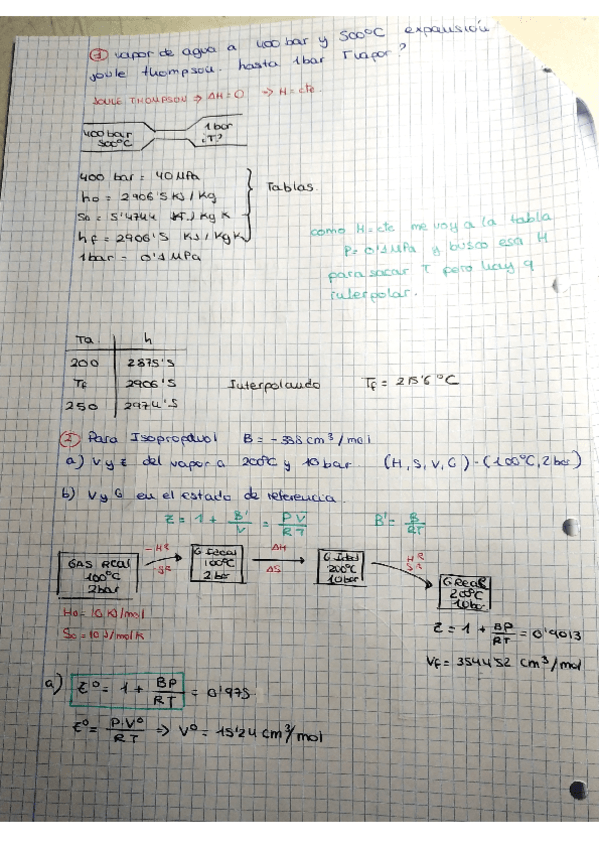 ① vapor de agua a 400 bar y 500°C expansión
Joule thompson. hasta 1bar Tvapor?
JOULE THOMPSON ⇒ ΔH = 0 → H = cte.
400 bar
500°C
1 bar
¿T?
400 bar = 40 MPa
ho = 2906'5 KJ/Kg
So = 5'4744 KJ/Kg K
hf = 2906'5 KJ/KgK
1 bar = 0'1 MPa
Tablas
como H=cte me voy a la tabla
P=0'1MPa y busco esa H
para sacar T pero hay q
interpolar.
Ta h
200 2875'5
Tf 2906'5
250 2974'5
Interpolando Tf = 215'6 °C
② Para Isopropanol B = -388 cm³/mol
a) V y Z del vapor a 200°C y 10 bar. (H, S, V, G) - (100°C, 2 bar)
b) V y G en el estado de referencia.
Z = 1 + B'/V = PV/RT B' = B/RT
GAS REAL
100°C
2bar
-HR
-SR
G Ideal
100°C
2 bar
ΔH
ΔS
G Ideal
200°C
10 bar
HR
SR
G Real
200°C
10 bar
Ho = 10 KJ/mol
So = 10 J/mol K
Z = 1 + BP/RT = 0'9013
Vf = 3544'52 cm³/mol
a) Z° = 1 + BP/RT = 0'975
Z° = P·V°/RT ⇒ V° = 15'24 cm³/mol